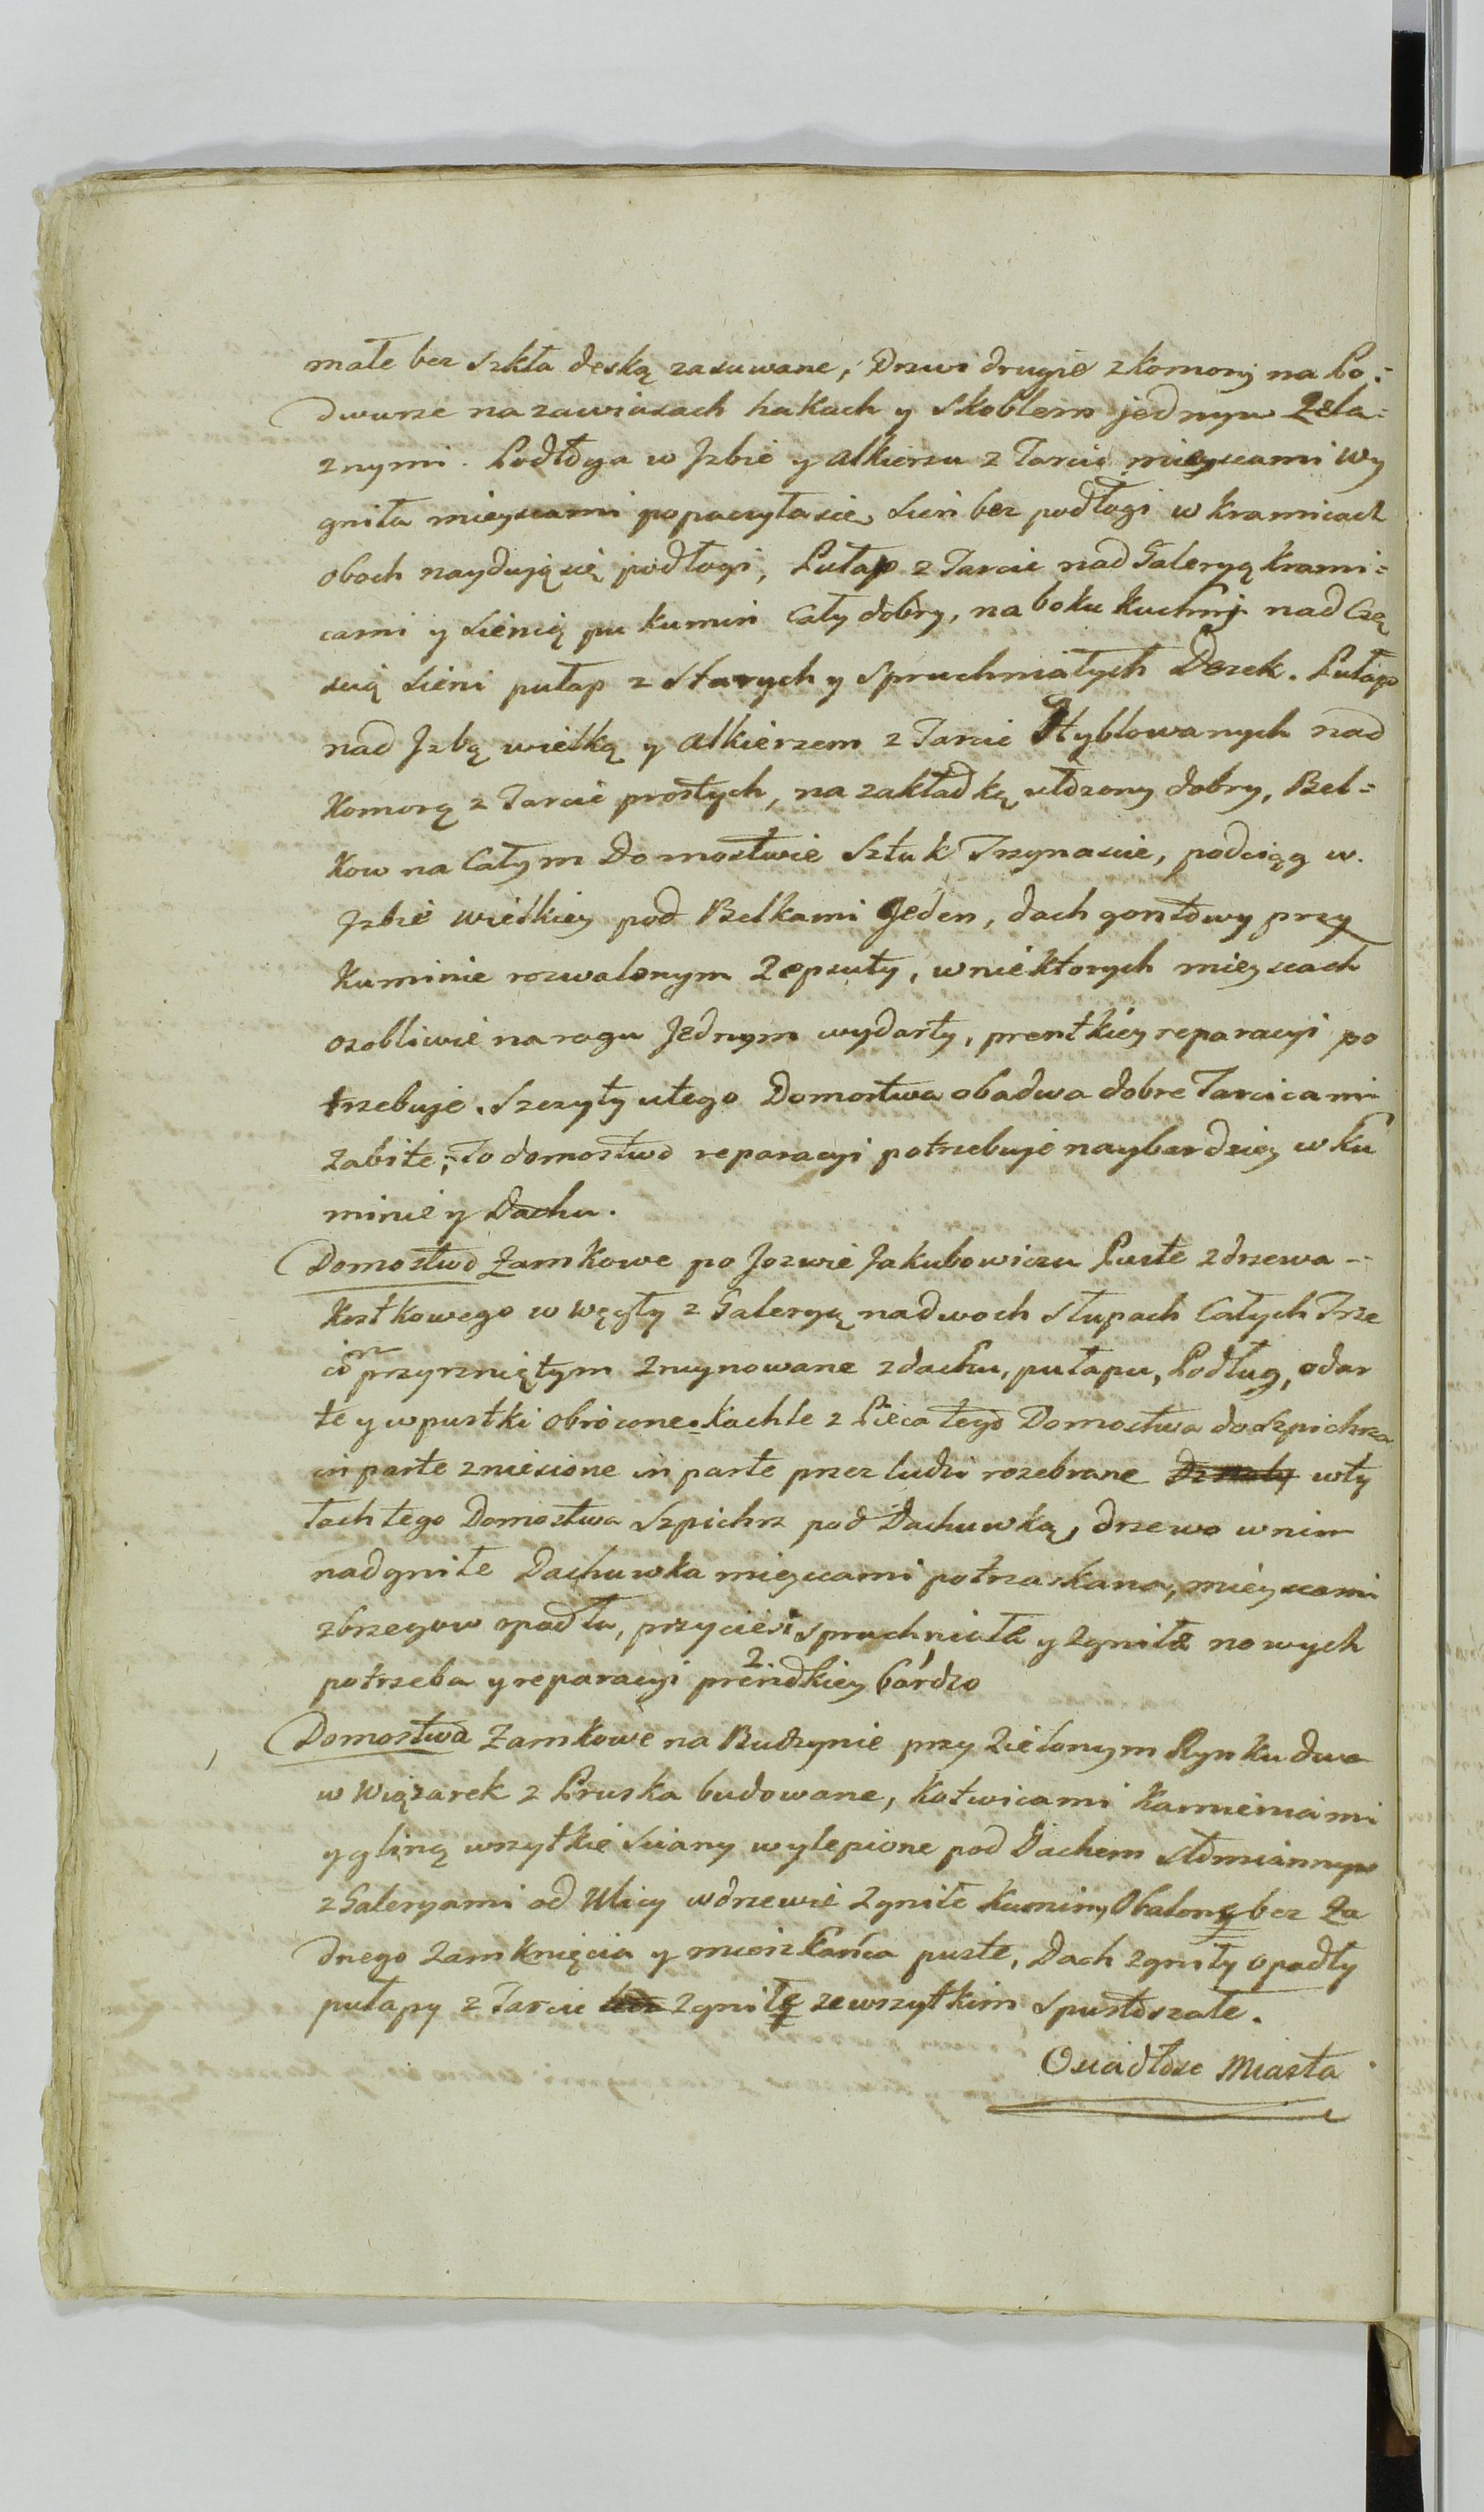 małe bez szkła deską zasuwane, Drzwi drugie z komory na Po-
dwurze na zawiasach hakach y skoblem jednym Zela=
znymi. Podłoga w Jzbie y alkierzu z Tarcic mieyscami wy
gniła mieyscami popaczyła sie, sień bez podłogi w kramicach
oboch nayduią się podłogi, Pułap z Tarcic nad Galeryą krami=
cami y sienią pu kumin cały dobry, na boku kuchnj nad Czę
scią sieni pułap z starych y spruchniałych Desek. Pułap
nad Jzbą wielką y alkierzem z Tarcic Hyblowanych nad
Komorą z Tarcic prostych, na zakładkę ułożony dobry, Bel=
kow na Całym Domostwie sztuk Trzynascie, podciąg w.
Jzbie wielkiey pod Belkami Jeden, dach gontowy przy
Kuminie rozwalonym Zepsuty, w niektorych mieyscach
osobliwie na rogu Jednym wydarty, prentkiey reparacyi po
trzebuje. Szczyty u tego Domostwa obadwa dobre Tarcicami
zabite; To domostwo reparacyi potrzebuje naybardziey w ku
minie y Dachu.
Domostwo Zamkowe po Jozwie Jakubowiczu Puste z drzewa
Kostkowego w węgły z Galeryą na dwoch słupach Całych Trze
cim przyrzniętym zruynowane z dachu, pułapu, Podług, odar
te y w pustki obrocone. Kachle z Pieca tego Domostwa do Szpichrza
in parte zniesione in parte przez ludzi rozebrane w ty
łach tego Domostwa Szpichrz pod Dachuwką, drzewo w nim
nadgniłe Dachuwka mieyscami potrzaskana, mieyscami
z brzegow opadła, przyciesi spruchniałe y zgniłe nowych
potrzeba y reparacyi prendkiey 2. bardzo
Domostwa Zamkowe na Budzynie przy Zielonym Rynku dwa
w Wiązarek z Pruska budowane, Kotwicami Kamieniami
y gliną wszytkie sciany wylepione pod Dachem słomiannym
z Galeryami od Ulicy w drzewie zgniłe kuminy Obalony bez Za
dnego Zamknięcia y mieszkańca puste, Dach zgniły opadły
pułapy z Tarcic zgniłe ze wszytkim spustoszałe.
Osiadłosc Miasta